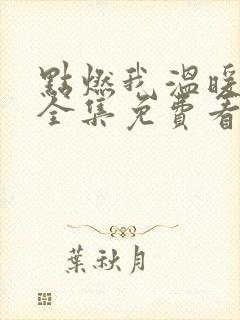 點燃我溫暖
全集免費看
葉秋月